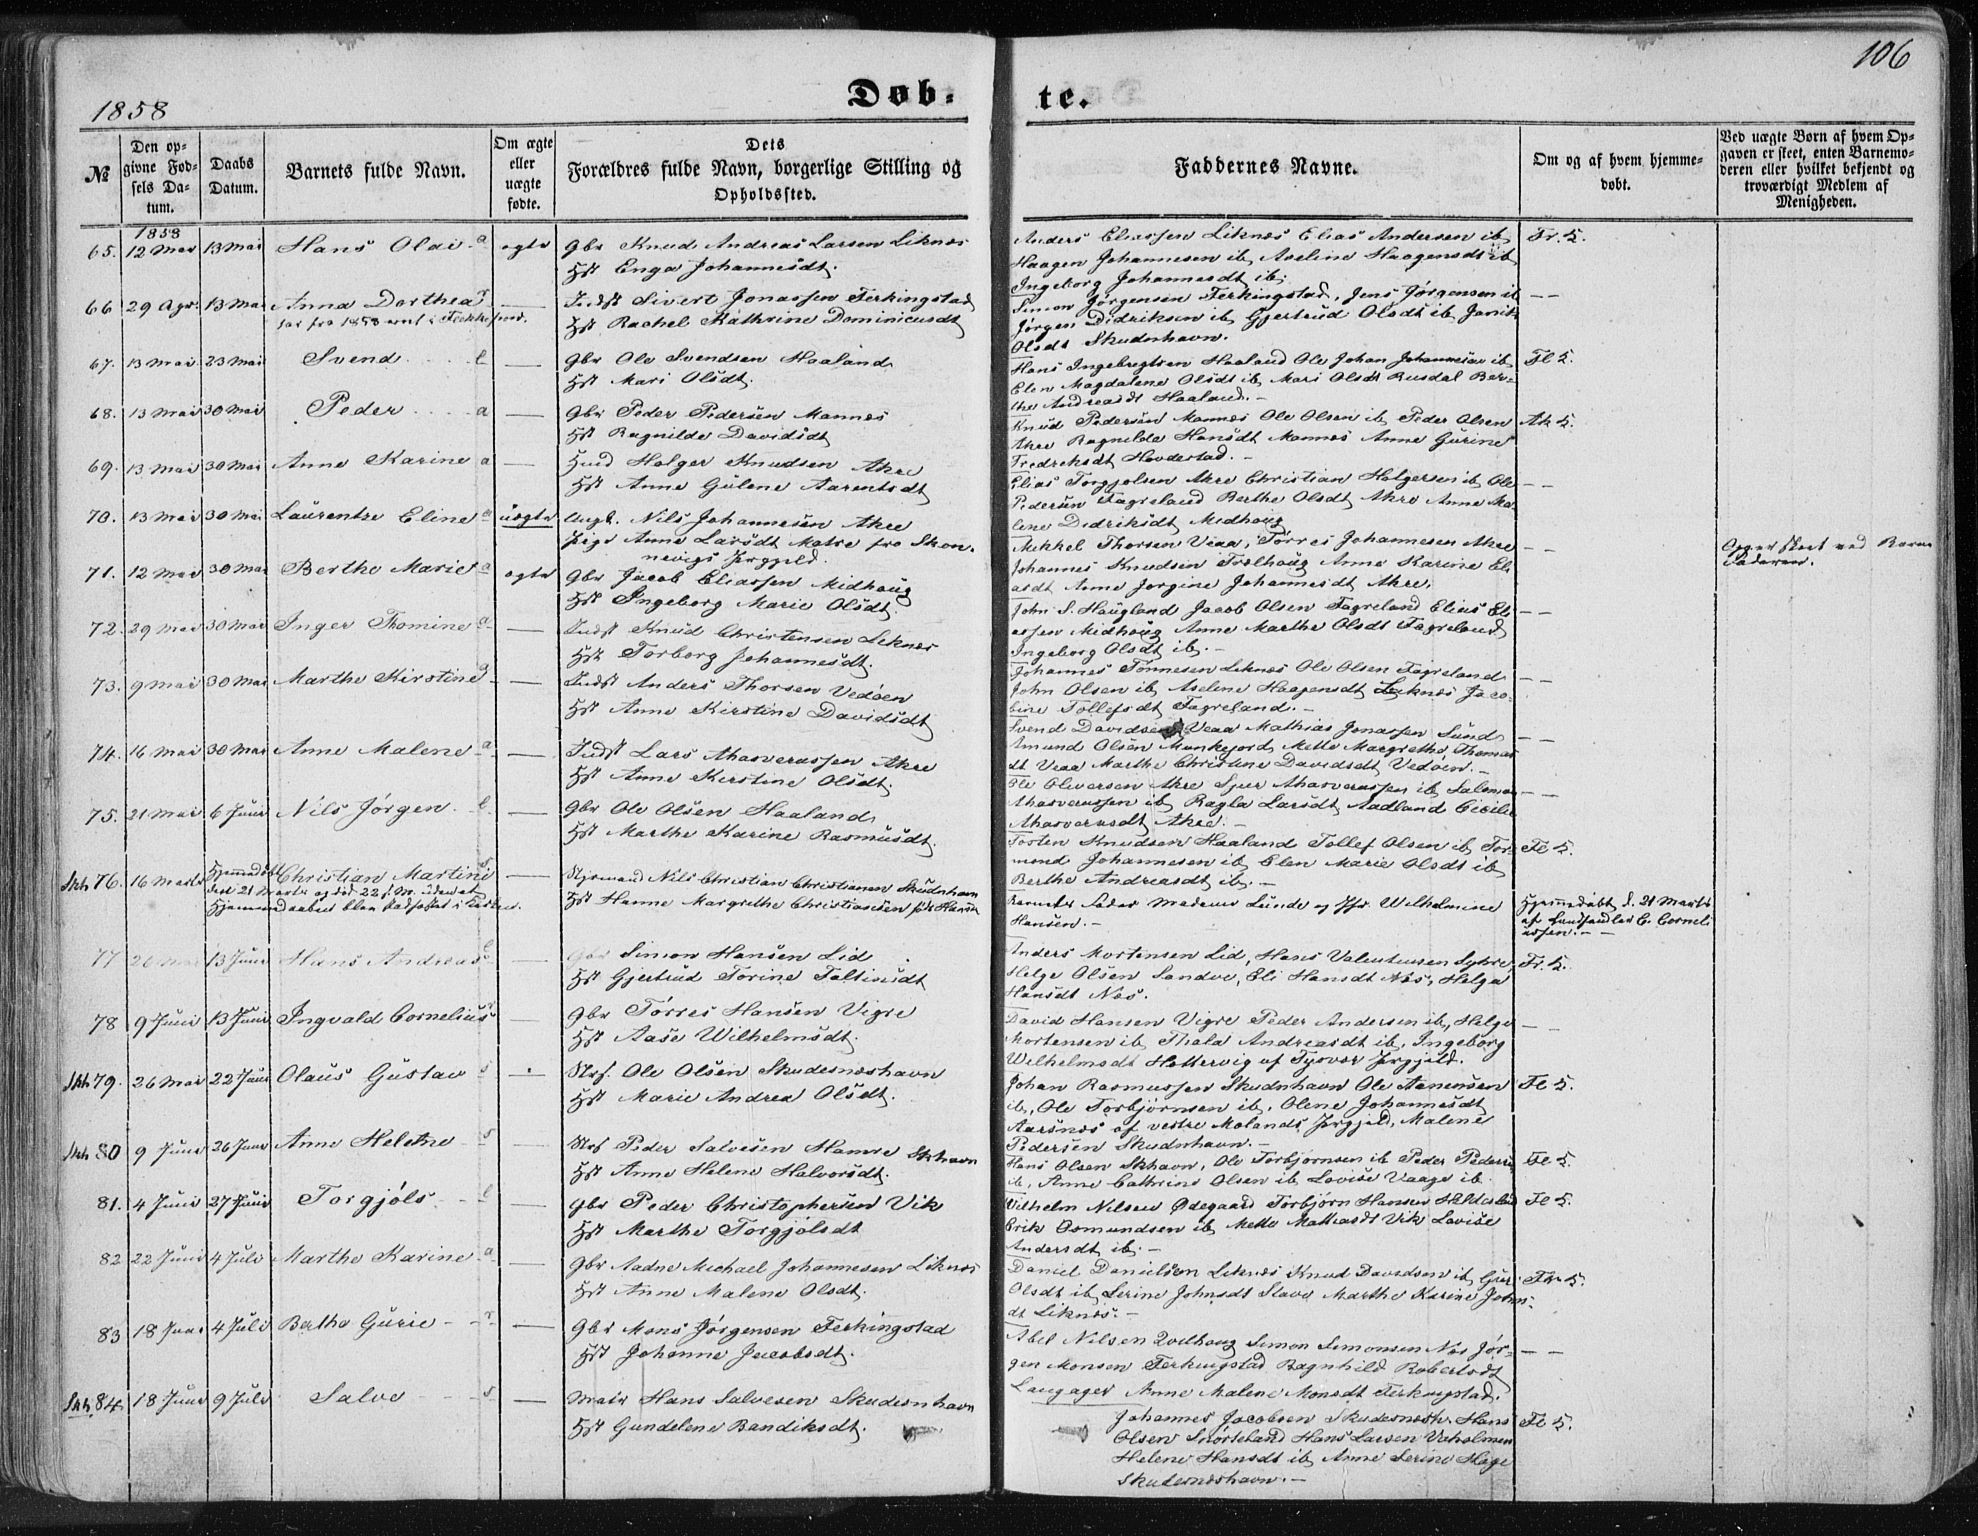 1858
Døb-
te.
106
№
Den op-
givne Fød-
sels Da-
tum.
Daabs
Datum.
Barnets fulde Navn.
Om ægte
eller
uægte
fødte.
Dets
Forældres fulde Navn, borgerlige Stilling og
Opholdssted.
Faddernes Navne.
Om og af hvem hjemme-
døbt.
Ved uægte Børn af hvem Op-
gaven er skeet, enten Barnemo-
deren eller hvilket bekjendt og
troværdigt Medlem af
Menigheden.
1858
65. 12 Mai 13 Mai Hans Olai a ægte Gbr Knud Andreas Larsen Liknes
Hst Enga Johannesdt.
Anders Eliassen Liknes Elias Andersen ib
Haagen Johannesen ib Aseline Haagensdt ib
Ingeborg Johannesdt ib.
66 29 Apr. 13 Mai Anna Dorthea — Indst Sivert Jonassen Ferkingstad
Hst Rachel Kathrine Dominicusdt
Simon Jørgensen Ferkingstad, Jens Jørgensen ib
Jørgen Didriksen ib Gjertrud Olsdt ib
Olsdt Skudnhavn.
67. 13 Mai 23 Mai Svend — Gbr Ole Svendsen Haaland
Hst Mari Olsdt.
Hans Ingebregtsen Haaland Ole Johan Johannesen ib
Elen Magdalene Olsdt ib, Mari Olsdt Rusdal Ber-
the Andreasdt Haaland.
68. 13 Mai 30 Mai Peder a — Gbr Peder Pedersen Mannes
Hst Ragnilde Davidsdt
Knud Pedersen Mannes Ole Olsen ib Peder Olsen
Akre Ragnilde Hansdt Mannes Anne Gurine
Fredriksdt Hovdestad.
69. 13 Mai 30 Mai Anne Karine a — Holger Knudsen Akre
Hst Anne Gulene Aarentsdt
Elias Torgjolsen Akre Christian Holgersen ib Ole
Pedersen Fagreland Berthe Olsdt Akre Anne Ma-
lene Didriksdt Medhoug
70. 13 Mai 30 Mai Laurentze Eline a uægte Ungk. Nils Johannesen Akre
Pige Anne Larsdt Matre fra Skon-
nevigs Prgjeld.
Mikkel Thorsen Veaa, Torres Johannesen Akre
Johannes Knudsen Anne Karine Eli
asdt Anne Jorgine Johannesdt Akre.
Opgav skeet ved Barne
Faderen.
71. 12 Mai 30 Mai Berthe Marie a ægte Gbr Jacob Eliassen Midhoug
Hst Ingeborg Marie Olsdt.
John S. Haugland Jacob Olsen Fagreland Elias Eli
assen Midhoug Anne Marthe Olsdt Fagreland
Ingeborg Olsdt ib.
72. 29 Mai 30 Mai Inger Thomine a — Indst Knud Christensen Leknes
Hst Torborg Johannesdt.
Johannes Tonnesen Leknes Ole Olsen Fagreland
John Olsen ib, Aselene Haagensdt Leknes Jaco-
bine Tollefsdt Fagreland.
73. 9 Mai 30 Mai Marthe Kirstine a — Indst Anders Thorsen Vedøen
Hst Anne Kirstine Davidsdt
Svend Davidsen Veaa Mathias Jonassen Sund
Amund Olsen Munkejord, Mette Margrethe Thomas
dt Veaa Marthe Christine Davidsdt Vedøen.
74. 16 Mai 30 Mai Anne Malene a — Indst Lars Ahasverassen Akre
Hst Anne Kirstine Olsdt.
Ole Oliversen Akre Sjur Ahasverassen ib Salomon
Ahasverassen ib, Ragla Larsdt Aadland Cicilie
Ahasverasdt Akre.
75. 21 Mai 6 Juni Nils Jørgen — Gbr Ole Olsen Haaland
Hst Marthe Karine Rasmusdt.
Torsten Knudsen Haaland Tollef Olsen ib Tor-
mond Johannesen ib Elen Marie Olsdt ib
Berthe Andreasdt ib.
Skh 76. 16 Marts Hjemmedøbt Christian Martin s — Styrmand Nils Christian Christiansen Skudnhavn
den 21 Marts og død 22
Hst Hanne Margrethe Christiansen født Hansen
Madame Lunde og Jfr. Wilhelmine
Hansen.
Hjemmedøbt d. 21 Marts
af Landhandler C. Corneli
ussen.
77 13 Juni Hans Andreas — Gbr Simon Hansen Lid
Hst Gjertrud Torine Faltinsdt
Anders Mortensen Lid, Hans Valentinsen Syhre
Helge Olsen Sandve, Eli Hansdt Nes, Helga
Hansdt Nes.
78 9 Juni 13 Juni Ingvald Cornelius — Gbr Tørres Hansen Vigre
Hst Aase Wilhelmsdt.
David Hansen Vigre Peder Andersen ib, Helge
Mortensen ib, Thala Andreasdt ib, Ingeborg
Wilhelmsdt Hettervig af Tysvær Prgjeld.
Skh 79. 26 Mai 22 Juni Olaus Gustav s Ole Olsen Skudesneshavn
Hst Marie Andrea Olsdt.
Johan Rasmussen Skudnhavn Ole Aanensen
ib, Ole Torbjørnsen ib, Olene Johannesdt
Aarsnes af vestre Molands Prgjeld, Malene
Pedersen Skudnhavn.
Skh 80 9 Juni 26 Juni Anne Helene s — Peder Salvesen Hamre Skhavn
Hst Anne Helene Halvorsdt.
Hans Olsen Skhavn, Ole Torbjornsen ib Peder Pedersen
ib, Anne Cathrine Olsen ib Lovise Vaage ib
81. 4 Juni 27 Juni Torgjøls — Gbr Peder Christophersen Vik
Hst Marthe Torgjølsdt
Vilhelm Nilsen Ødegaard Torbjørn Hansen
Erik Osmundsen ib, Mette Mathiasdt Vik Lovise
Andersdt ib.
82 22 Juni 4 Juli Marthe Karine a — Gbr Aadne Michael Johannesen Liknes
Hst Anne Malene Olsdt.
Daniel Danielsen Leknes Knud Davidsen ib, Guri
Olsdt ib, Serine Johnsdt Stave Marthe Karine John-
dt Liknes.
83 18 Juni 4 Juli Bertha Gurie — Gbr Mons Jørgensen Ferkingstad
Hst Johanne Jacobsdt.
Abel Nilsen Qvilhoug Simon Simonsen Nes Jør-
gen Monsen Ferkingstad Ragnhild Robertsdt
Langager Anne Malene Monsdt Ferkingstad.
Skh 84. 18 Juni 9 Juli Salve s — Matr Hans Salvesen Skudesnhavn
Hst Gundelene Bendiksdt.
Johannes Jacobsen Skudesnesh. Hans
Olsen Snørteland Hans Larsen Vaholmen
Helene Hansdt ib, Anne Serine Hage
Skudesneshavn.